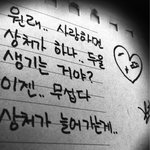 원래.. 사랑하면
상처가 하나.. 두울
생기는 거야?
이젠.. 무섭다
상처가 늘어가는게..